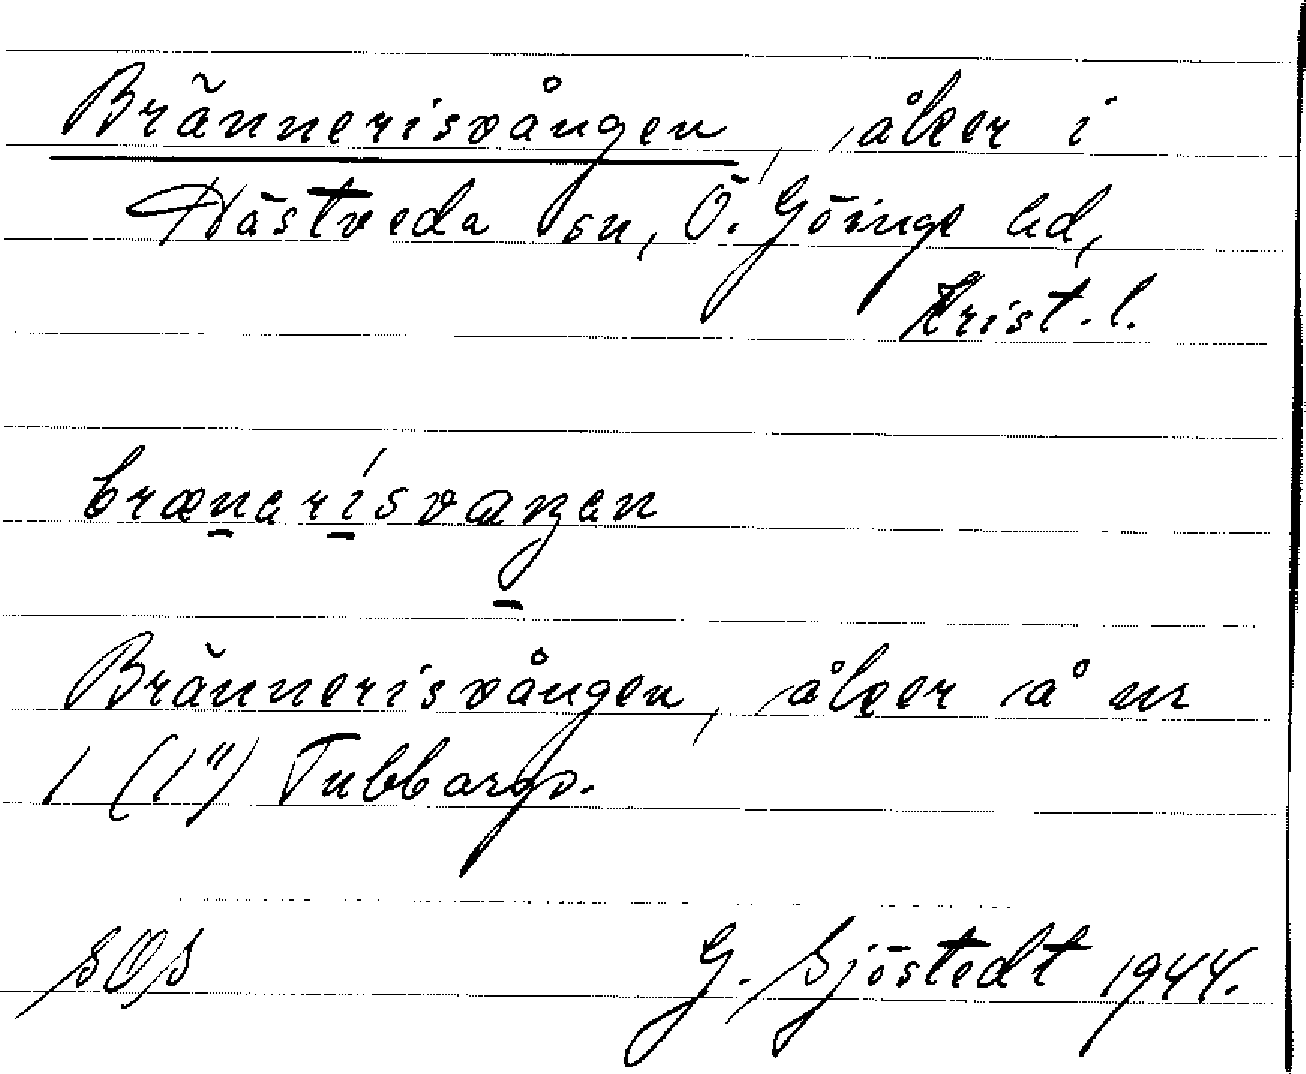 Brännerisvången, åker i
Hästveda sn, Ö. Göinge hd,
Krist. l.
brænarísvaŋan
Brännerisvången, åker å nr
1 (1") Tubbarp.
SOS G. Sjöstedt 1944.